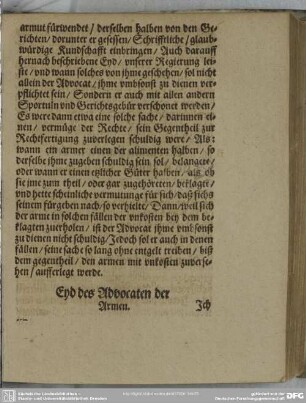 armut fürwendet / derselben halben von den Ge-
richten / dorunter er gesessen / Schrifftliche / glaub-
würdige Kundschafft einbringen / Auch darauff
hernach beschriebene Eyd / vnserer Regierung lei-
ste / vnd wann solches von jhme geschehen / sol nicht
allein der Advocat / jhme vmbsonst zu dienen ver-
pflichtet sein / Sondern er auch mit allen andern
Sportuln vnd Gerichtsgebür verschonet werden /
Es were dann etwa eine solche sache / darinnen ei-
nen / vermüge der Rechte / sein Gegentheil zur
Rechtfertigung zuverlegen schuldig were / Als:
wann ein armer einen der alimenten halben / so
derselbe jhme zugeben schuldig sein sol / belanget /
oder wann er einen etzlicher Güter halben / als ob
sie jme zum theil / oder gar zugehöreten / beklaget /
vnd hette scheinliche vermutunge für sich / daß sichs
seinem fürgeben nach / so verhielte / Dann / weil sich
der arme in solchen fällen der vnkosten bey dem be-
klagten zuerholen / ist der Advocat jhme vmbsonst
zu dienen nicht schuldig / Jedoch sol er auch in denen
fällen / seine sache so lang ohne entgelt treiben / biß
dem gegentheil / den armen mit vnkosten zuverse-
hen / aufferlegt werde.
Eyd des Advocaten der
Armen.
Jch